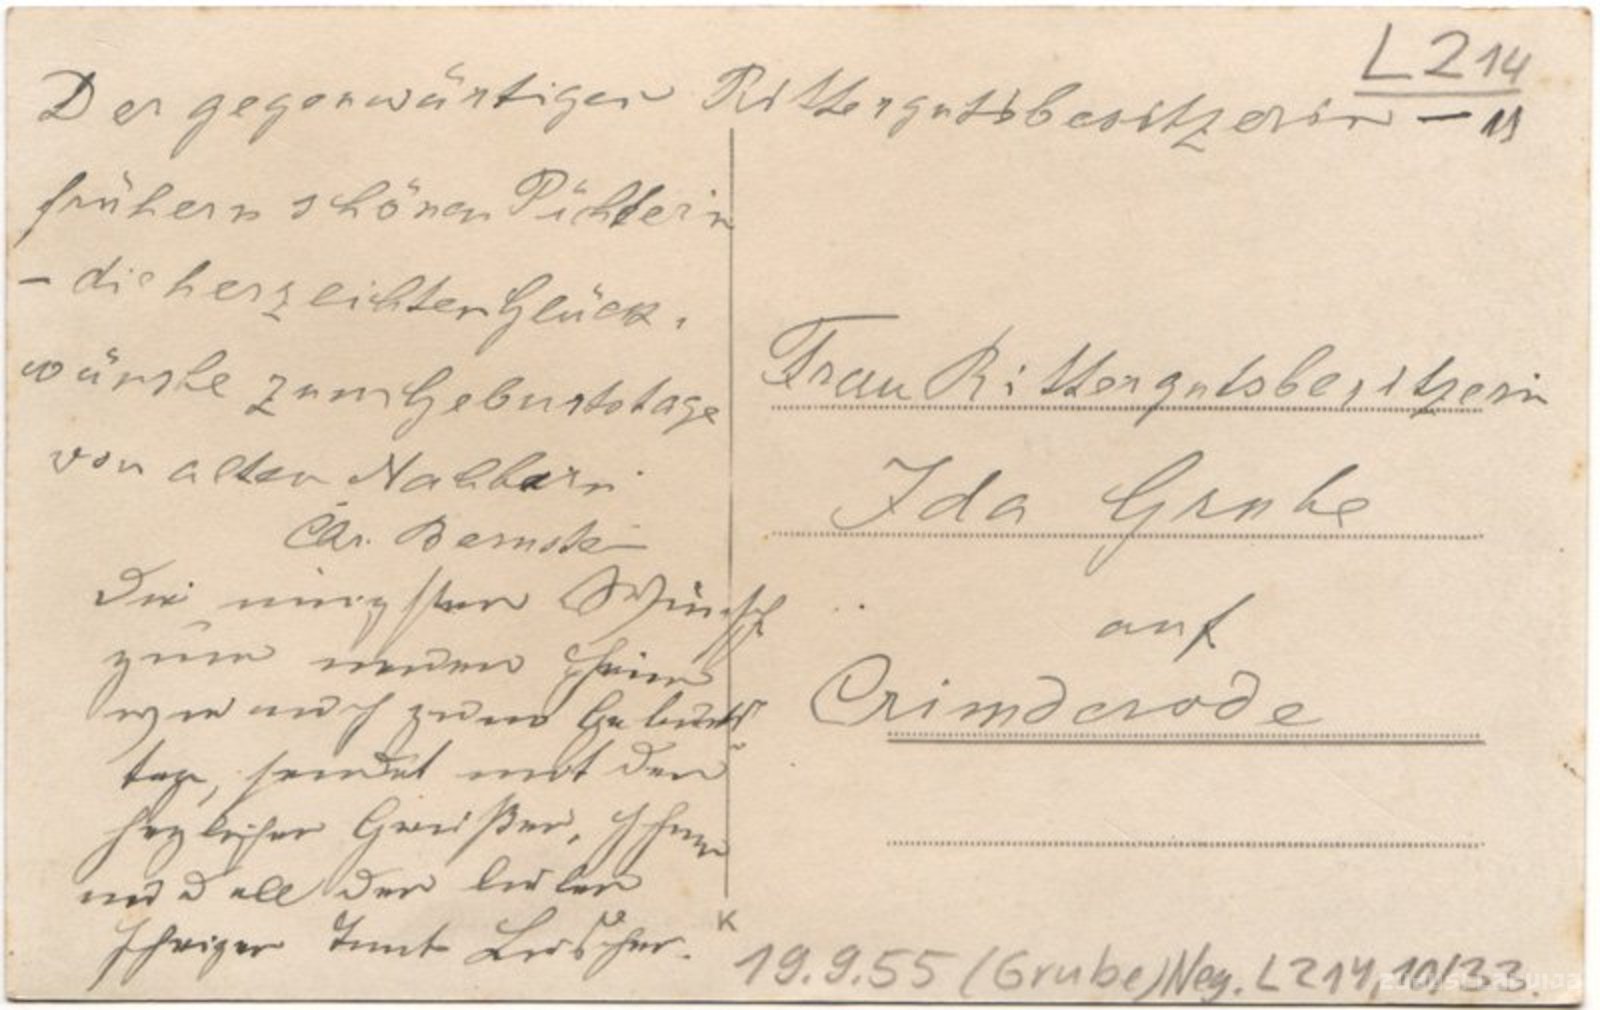 L Z 14
Der gegenwärtigen Rittergutsbesitzerin – u
frühern schönen Pächterin
– die herzlichten Glück-
wünshe zum Geburtstage
von alten Nachbarn
Car. Bernstein
Die innigsten Wünsch
zum neuen Heim
wie auch zum Geburts
tag, sendet mit den
herzlichen Grüßen, Ihnen
und all den lieben
Ihrigen Tante
Frau Rittergutsbesitzerin
Ida Grube
auf
Crimderode
K
19.9.55 (Grube) Neg. L Z 14, 10/33.